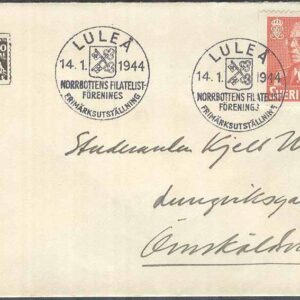 LULEÅ
14. 1. 1944
NORRBOTTENS FILATELIST-
FÖRENINGS
FRIMÄRKSUTSTÄLLNING
LULEÅ
14. 1. 1944
NORRBOTTENS FILATELIST-
FÖRENINGS
FRIMÄRKSUTSTÄLLNING
SVERI
Studeranden Kjell
Örnsköldsv